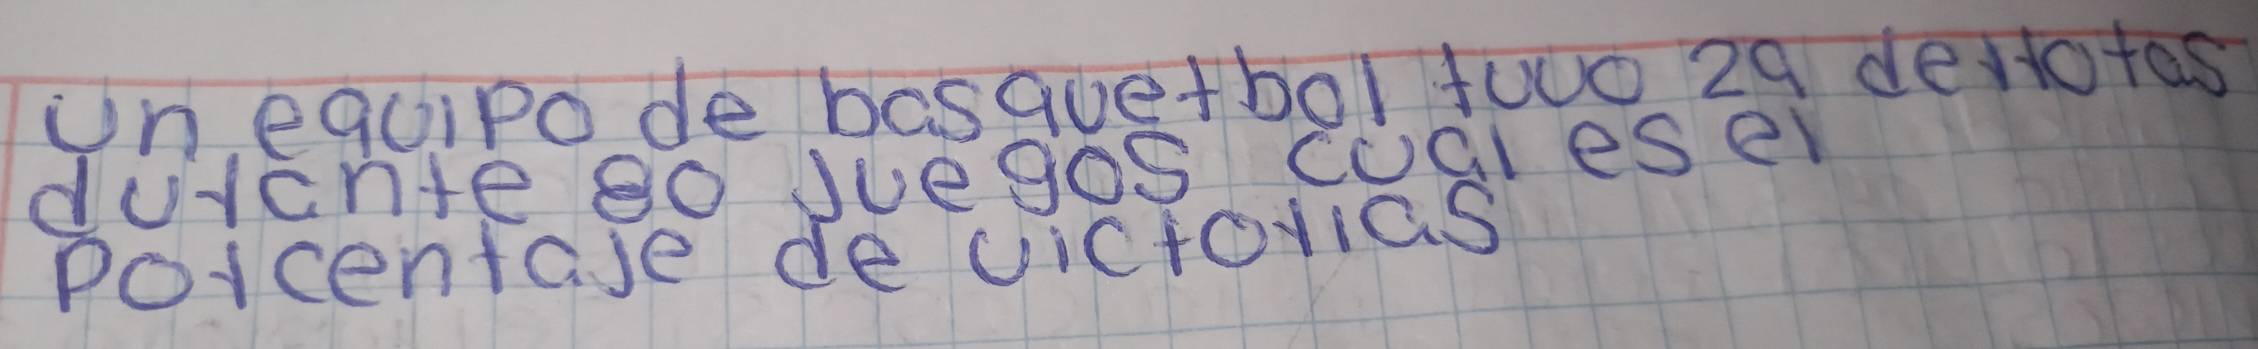 un equipo de basquetbol tuvo 29 derrotas
durante 80 juegos cual es el
porcentaje de victorias